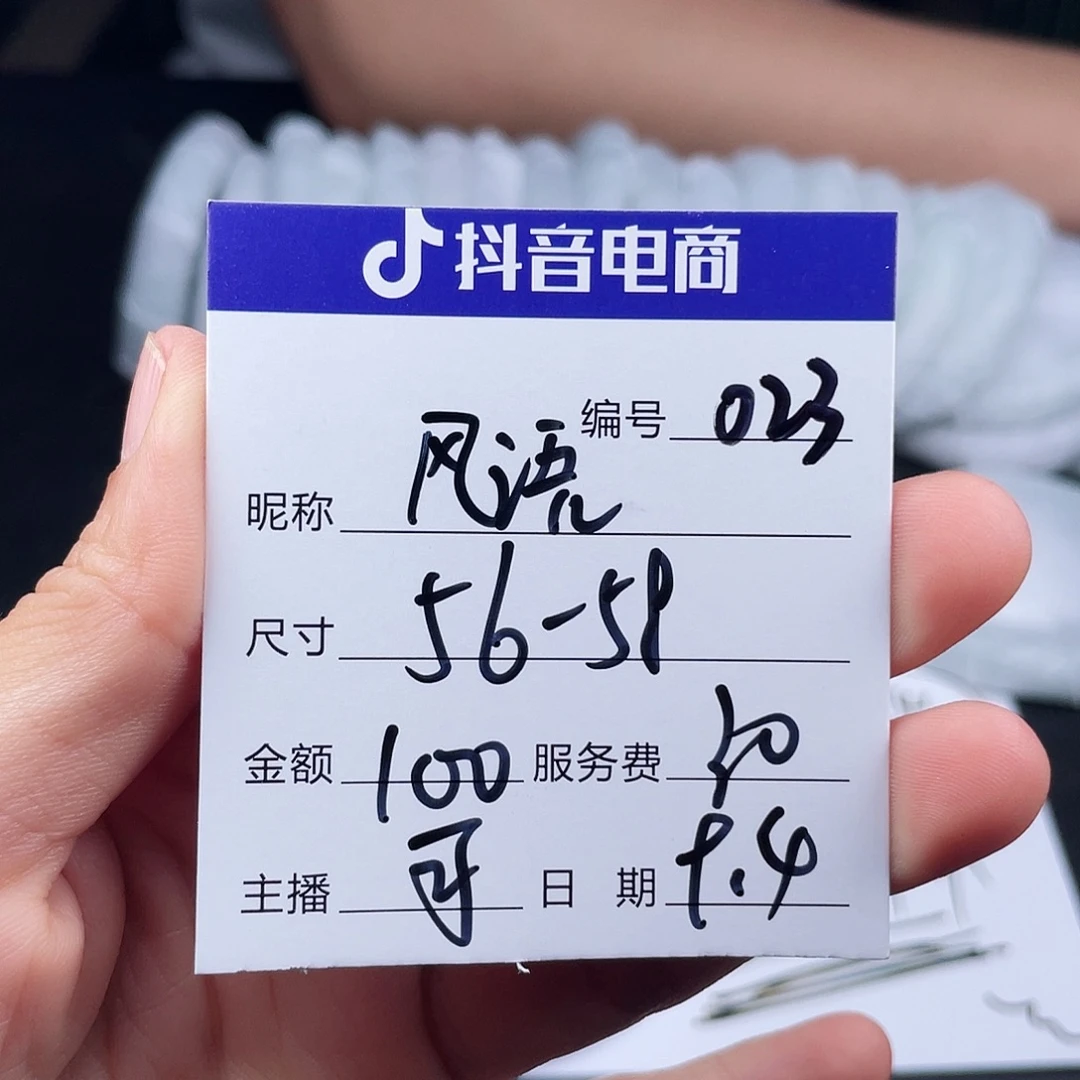 抖音电商
编号 023
昵称 风语
尺寸 56-58
金额 100 服务费 50
主播 日 期 9.4